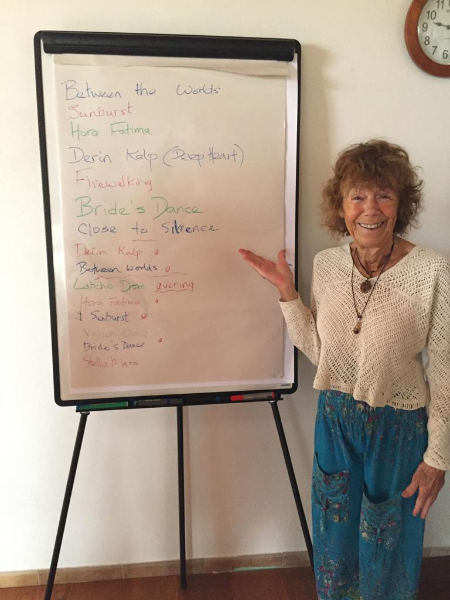 Between the Worlds
Sunburst
Hora Fatima
Derin Kalp (Deep Heart)
Firewalking
Bride's Dance
Close to Silence
Derin Kalp
Between Worlds
Latcho Drom evening
Hora Fatima
Sunburst
Bride's Dance
Stella Mara
10
9
8